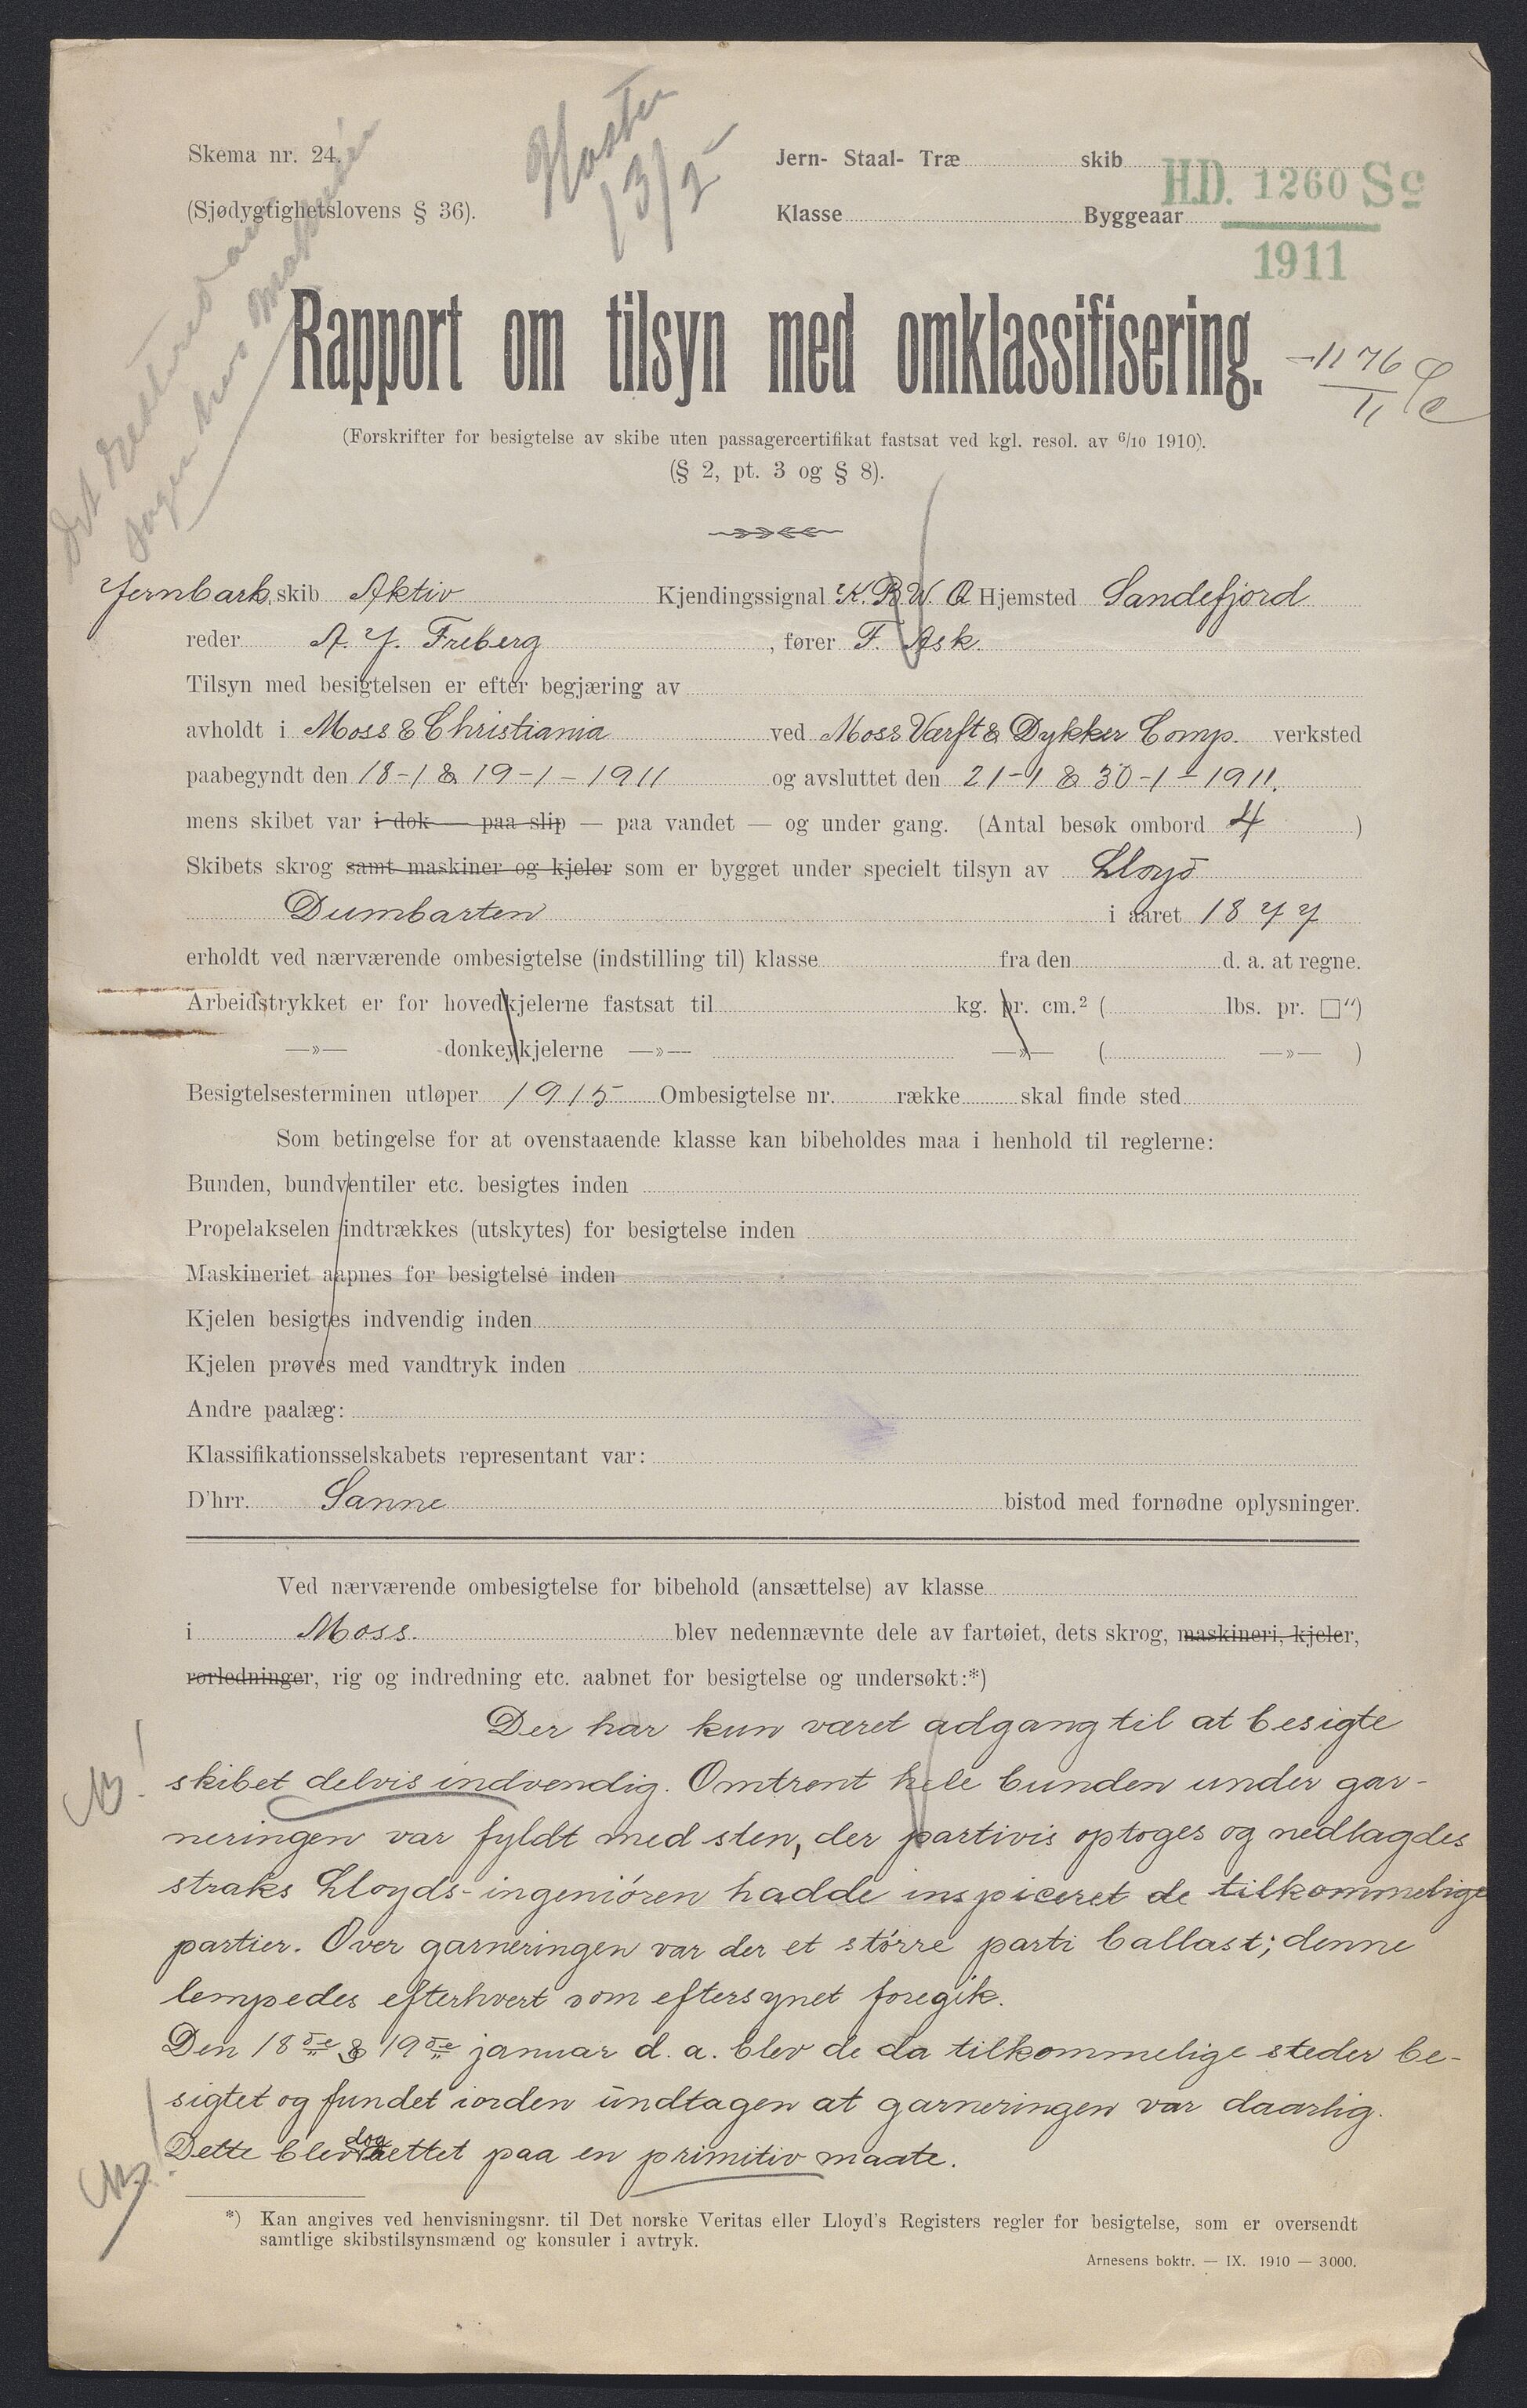 Skema nr. 24.
(Sjødygtighetslovens § 36).
Haster
13/2
Jern- Staal- Træ skib
Klasse Byggeaar
H.D. 1260 Sc
1911
Det
Rapport om tilsyn med omklassifisering.
1176
11
(Forskrifter for besigtelse av skibe uten passagercertifikat fastsat ved kgl. resol. av 6/10 1910).
(§ 2, pt. 3 og § 8).
Jernbark skib Aktiv Kjendingssignal K. B. W. Q Hjemsted Sandefjord
reder A. J. Freberg, fører F. Ask.
Tilsyn med besigtelsen er efter begjæring av
avholdt i Moss & Christiania ved Moss Værft & Dykker Comp. verksted
paabegyndt den 18-1 & 19-1-1911 og avsluttet den 21-1 & 30-1-1911.
mens skibet var i dok — paa slip — paa vandet — og under gang. (Antal besøk ombord 4 )
Skibets skrog samt maskiner og kjeler som er bygget under specielt tilsyn av Lloyd
Dumbarten i aaret 1877
erholdt ved nærværende ombesigtelse (indstilling til) klasse fra den d. a. at regne.
Arbeidstrykket er for hovedkjelerne fastsat til kg. pr. cm.² ( lbs. pr. □")
—»— donkeykjelerne —»— —»— ( —»— )
Besigtelsesterminen utløper 1915 Ombesigtelse nr. række skal finde sted
Som betingelse for at ovenstaaende klasse kan bibeholdes maa i henhold til reglerne:
Bunden, bundventiler etc. besigtes inden
Propelakselen indtrækkes (utskytes) for besigtelse inden
Maskineriet aapnes for besigtelse inden
Kjelen besigtes indvendig inden
Kjelen prøves med vandtryk inden
Andre paalæg:
Klassifikationsselskabets representant var:
D'hrr. Sanne bistod med fornødne oplysninger.
Ved nærværende ombesigtelse for bibehold (ansættelse) av klasse
i Moss. blev nedennævnte dele av fartøiet, dets skrog, maskineri, kjeler,
rørledninger, rig og indredning etc. aabnet for besigtelse og undersøkt:*)
Der har kun været adgang til at besigte
NB! skibet delvis indvendig. Omtrent hele bunden under gar-
neringen var fyldt med sten, der partivis optoges og nedlagdes
straks Lloyds-ingeniøren hadde inspiceret de tilkommelige
partier. Over garneringen var der et större parti ballast; denne
lempedes efterhvert som eftersynet foregik.
Den 18de & 19de januar d. a. blev de da tilkommelige steder be-
sigtet og fundet iorden undtagen at garneringen var daarlig.
NB! Dette blev dog rettet paa en primitiv maate.
*) Kan angives ved henvisningsnr. til Det norske Veritas eller Lloyd's Registers regler for besigtelse, som er oversendt
samtlige skibstilsynsmænd og konsuler i avtryk.
Arnesens boktr. — IX. 1910 — 3000.